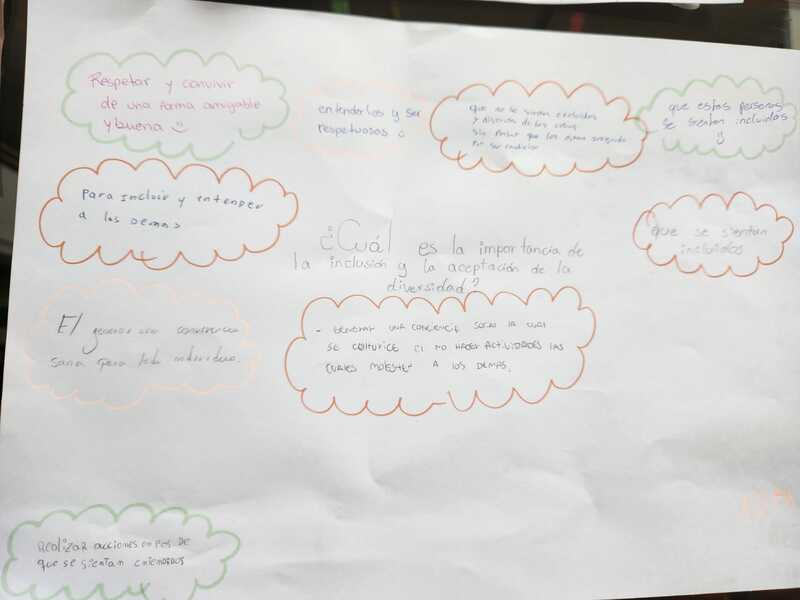 Respetar y convivir
de una forma amigable
y buena
entenderlos y ser
respetuosos
que no se sientan excluidos
y distintos de los otros
sin pensar que los están
por su condición
que estas personas
se sientan incluidos
Para incluir y entender
a los demas
que se sientan
incluidos
¿Cuál es la importancia de
la inclusión y la aceptación de la
diversidad?
El generar una convivencia
sana para todo individuo.
- Generar una conciencia social la cual
se culturice el no hacer actividades las
cuales molesten a los demás.
Realizar acciones en pos de
que se sientan entendidos